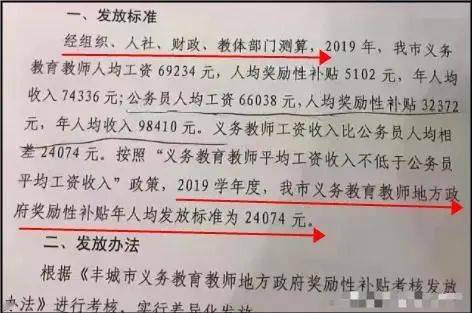 一、发放标准
经组织、人社、财政、教体部门测算，2019 年，我市义务
教育教师人均工资 69234 元，人均奖励性补贴 5102 元，年人均
收入 74336 元；公务员人均工资 66038 元，人均奖励性补贴 32372
元，年人均收入 98410 元。义务教师工资收入比公务员人均相
差 24074 元。按照“义务教育教师平均工资收入不低于公务员
平均工资收入”政策，2019 学年度，我市义务教育教师地方政
府奖励性补贴年人均发放标准为 24074 元。
二、发放办法
根据《丰城市义务教育教师地方政府奖励性补贴考核发放
办法》进行考核，实行差异化发放